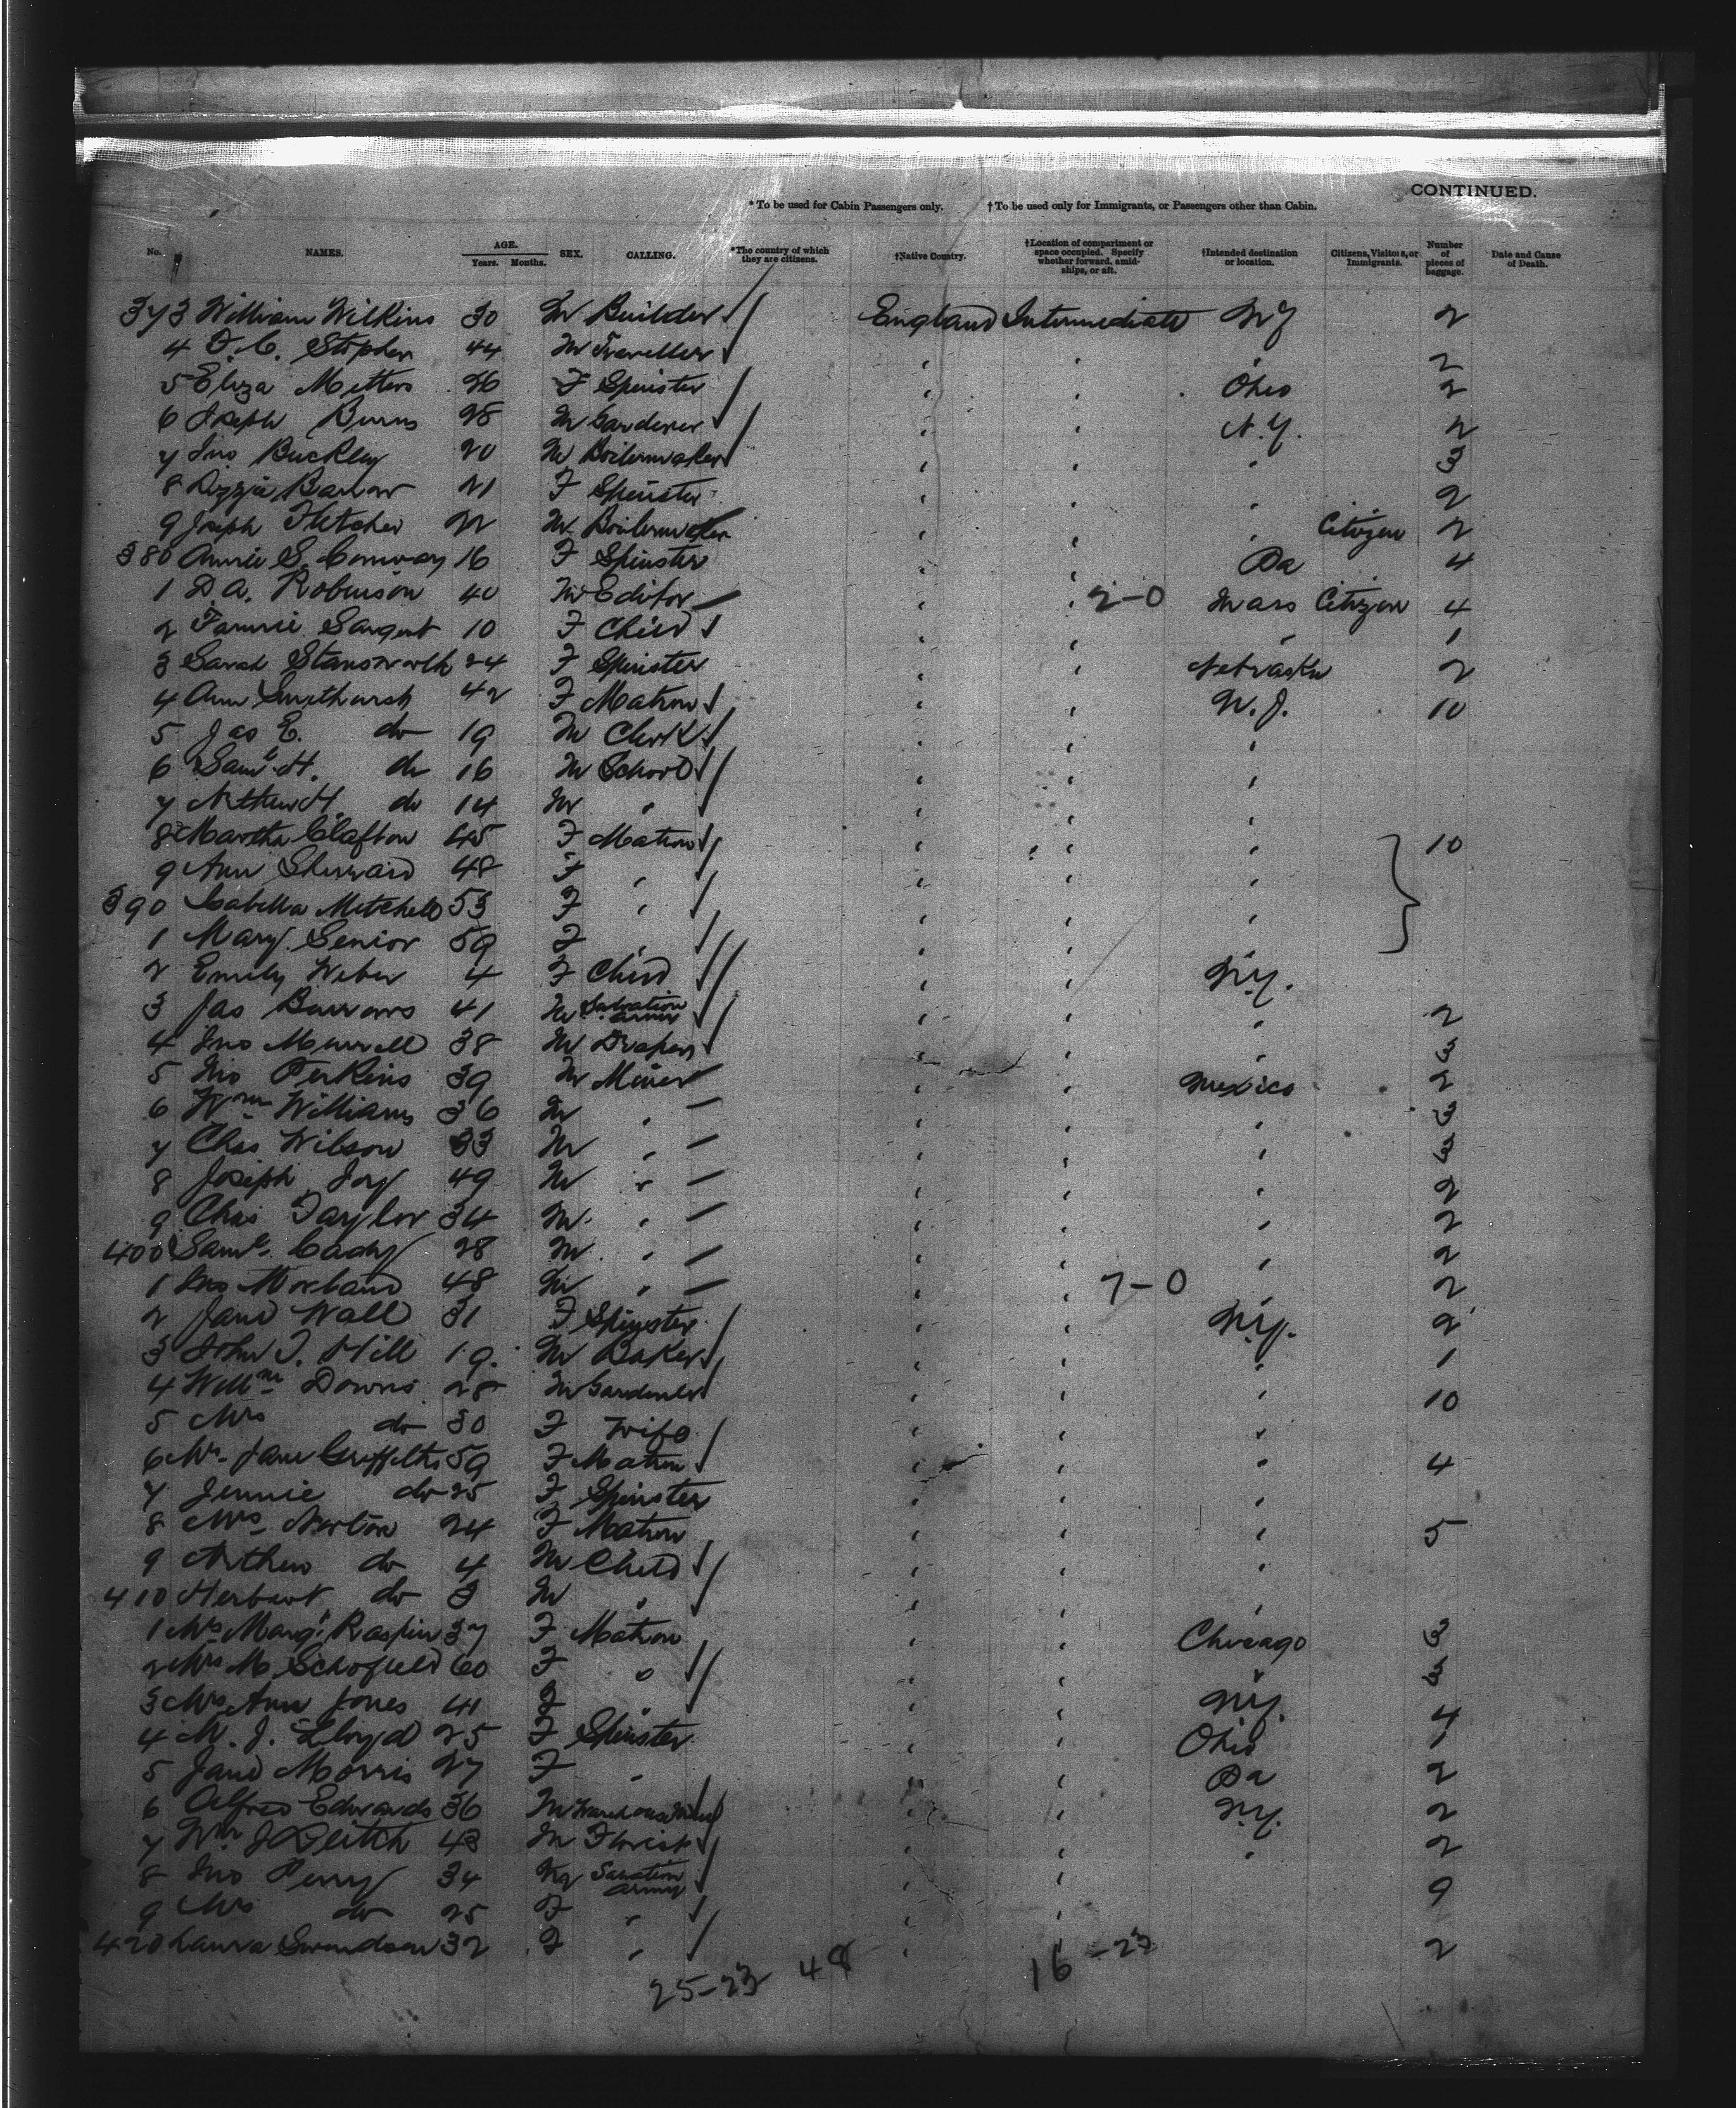 CONTINUED.
* To be used for Cabin Passengers only. † To be used only for Immigrants, or Passengers other than Cabin.
No. NAMES. AGE. Years. Months. SEX. CALLING. *The country of which they are citizens. †Native Country. †Location of compartment or space occupied. Specify whether forward, amidships, or aft. †Intended destination or location. Citizens, Visitors, or Immigrants. Number of pieces of baggage. Date and Cause of Death.
373 William Wilkins 30 M Builder England Intermediate NY 2
4 Stephen 44 M Traveller " " " 2
5 Eliza Mitters 26 F Spinster " " Ohio 2
6 Joseph Burns 28 M Gardener " " N.Y. 2
7 Jno Buckley 20 M Boilermaker " " " 3
8 Lizzie Barlow 21 F Spinster " " " 2
9 Joseph Fletcher 22 M Boilermaker " " " Citizen 2
380 Annie S. Conway 16 F Spinster " " Pa 4
1 D.A. Robinson 40 M Editor " " 2-0 Mass Citizen 4
2 Fannie Sargent 10 F Child " " " 1
3 Sarah Stansworth 24 F Spinster " " Nebraska 2
4 Ann Smithurst 42 F Matron " " N.J. 10
5 Jas E. do 19 M Clerk " " "
6 Saml H. do 16 M School " " "
7 Arthur H. do 14 M " " " "
8 Martha Clafton 45 F Matron " " " 10
9 Ann Sherrard 48 F " " " "
390 Isabella Mitchell 53 F " " " "
1 Mary Senior 59 F " " " "
2 Emily Weber 4 F Child " " N.Y.
3 Jas Burrows 41 M Salvation Army " " " 2
4 Jno Murrell 38 M Draper " " " 3
5 Jno Perkins 39 M Miner " " Mexico 2
6 Wm Williams 36 M " " " " 3
7 Chas Wilson 33 M " " " " 3
8 Joseph Joy 49 M " " " " 2
9 Chas Taylor 34 M " " " " 2
400 Saml Cady 28 M " " " " 2
1 Jno 48 M " " " 7-0 " 2
2 Jane Wall 31 F Spinster " " N.Y. 2
3 John T. Hill 19 M Baker " " " 1
4 Willm Downs 28 M Gardener " " " 10
5 Mrs do 30 F Wife " " "
6 Mrs Jane Griffiths 59 F Matron " " " 4
7 Jennie do 25 F Spinster " " "
8 Mrs Norton 24 F Matron " " " 5
9 Arthur do 4 M Child " " "
410 Herbert do 3 M " " " "
1 Mrs Margt Raspin 37 F Matron " " Chicago 3
2 Mrs M Schofield 60 F " " " " 3
3 Mrs Ann Jones 41 F " " " N.Y. 4
4 M. J. Lloyd 25 F Spinster " " Ohio 1
5 Jane Morris 27 F " " " Pa 2
6 Alfred Edwards 36 M Warehouseman " " N.Y. 2
7 Wm J Leitch 43 M Florist " " " 2
8 Jno Perry 34 M Salvation Army " " 9
9 Mrs do 25 F " " "
420 Laura Swendson 32 F " " 2
25-23 48 16-23